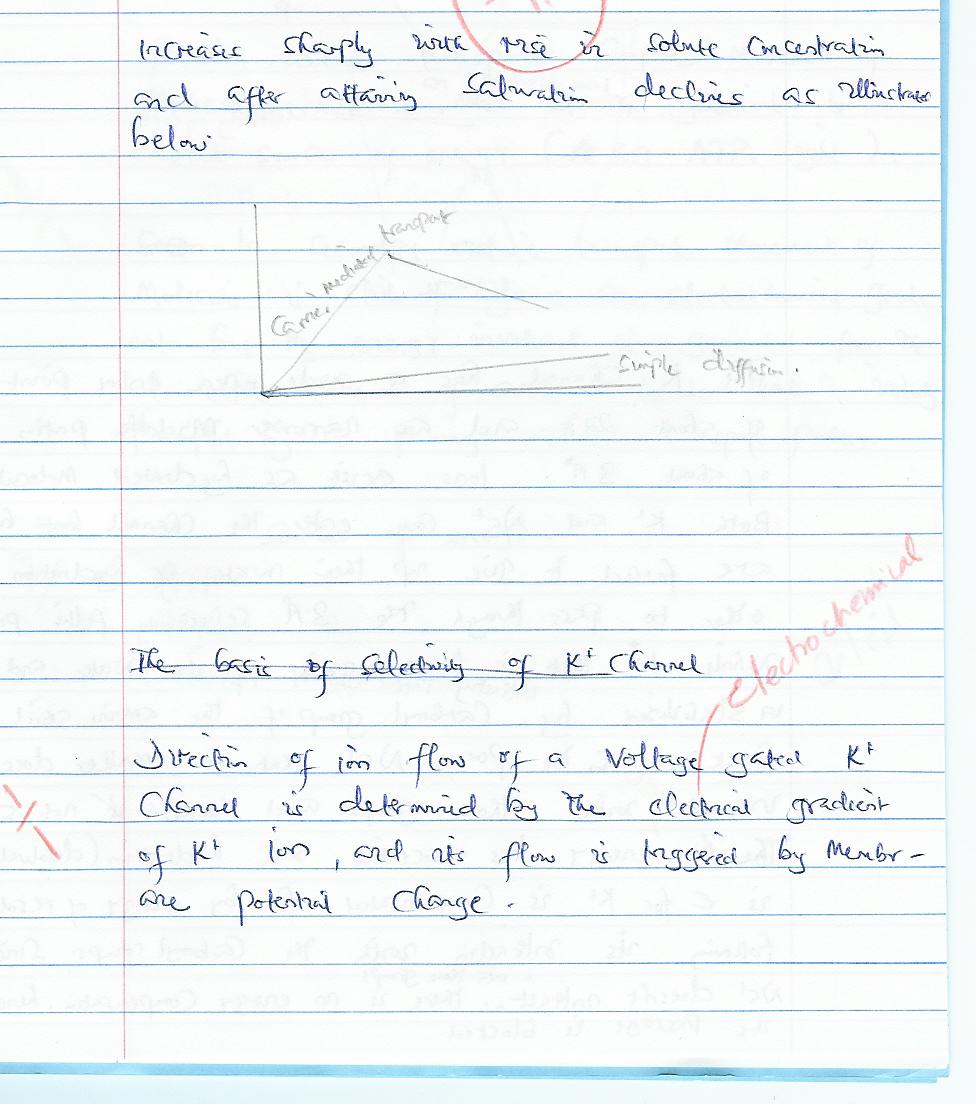 increases sharply with rise in solute concentration
and after attaining saturation declines as illustrates
below
Carrier mediated transport
simple diffusion.
electrochemical
The basis of selectivity of K+ Channel
Direction of ion flow of a voltage gated K+
Channel is determined by the electrical gradient
of K+ ion, and its flow is triggered by Membr-
ane potential Change.